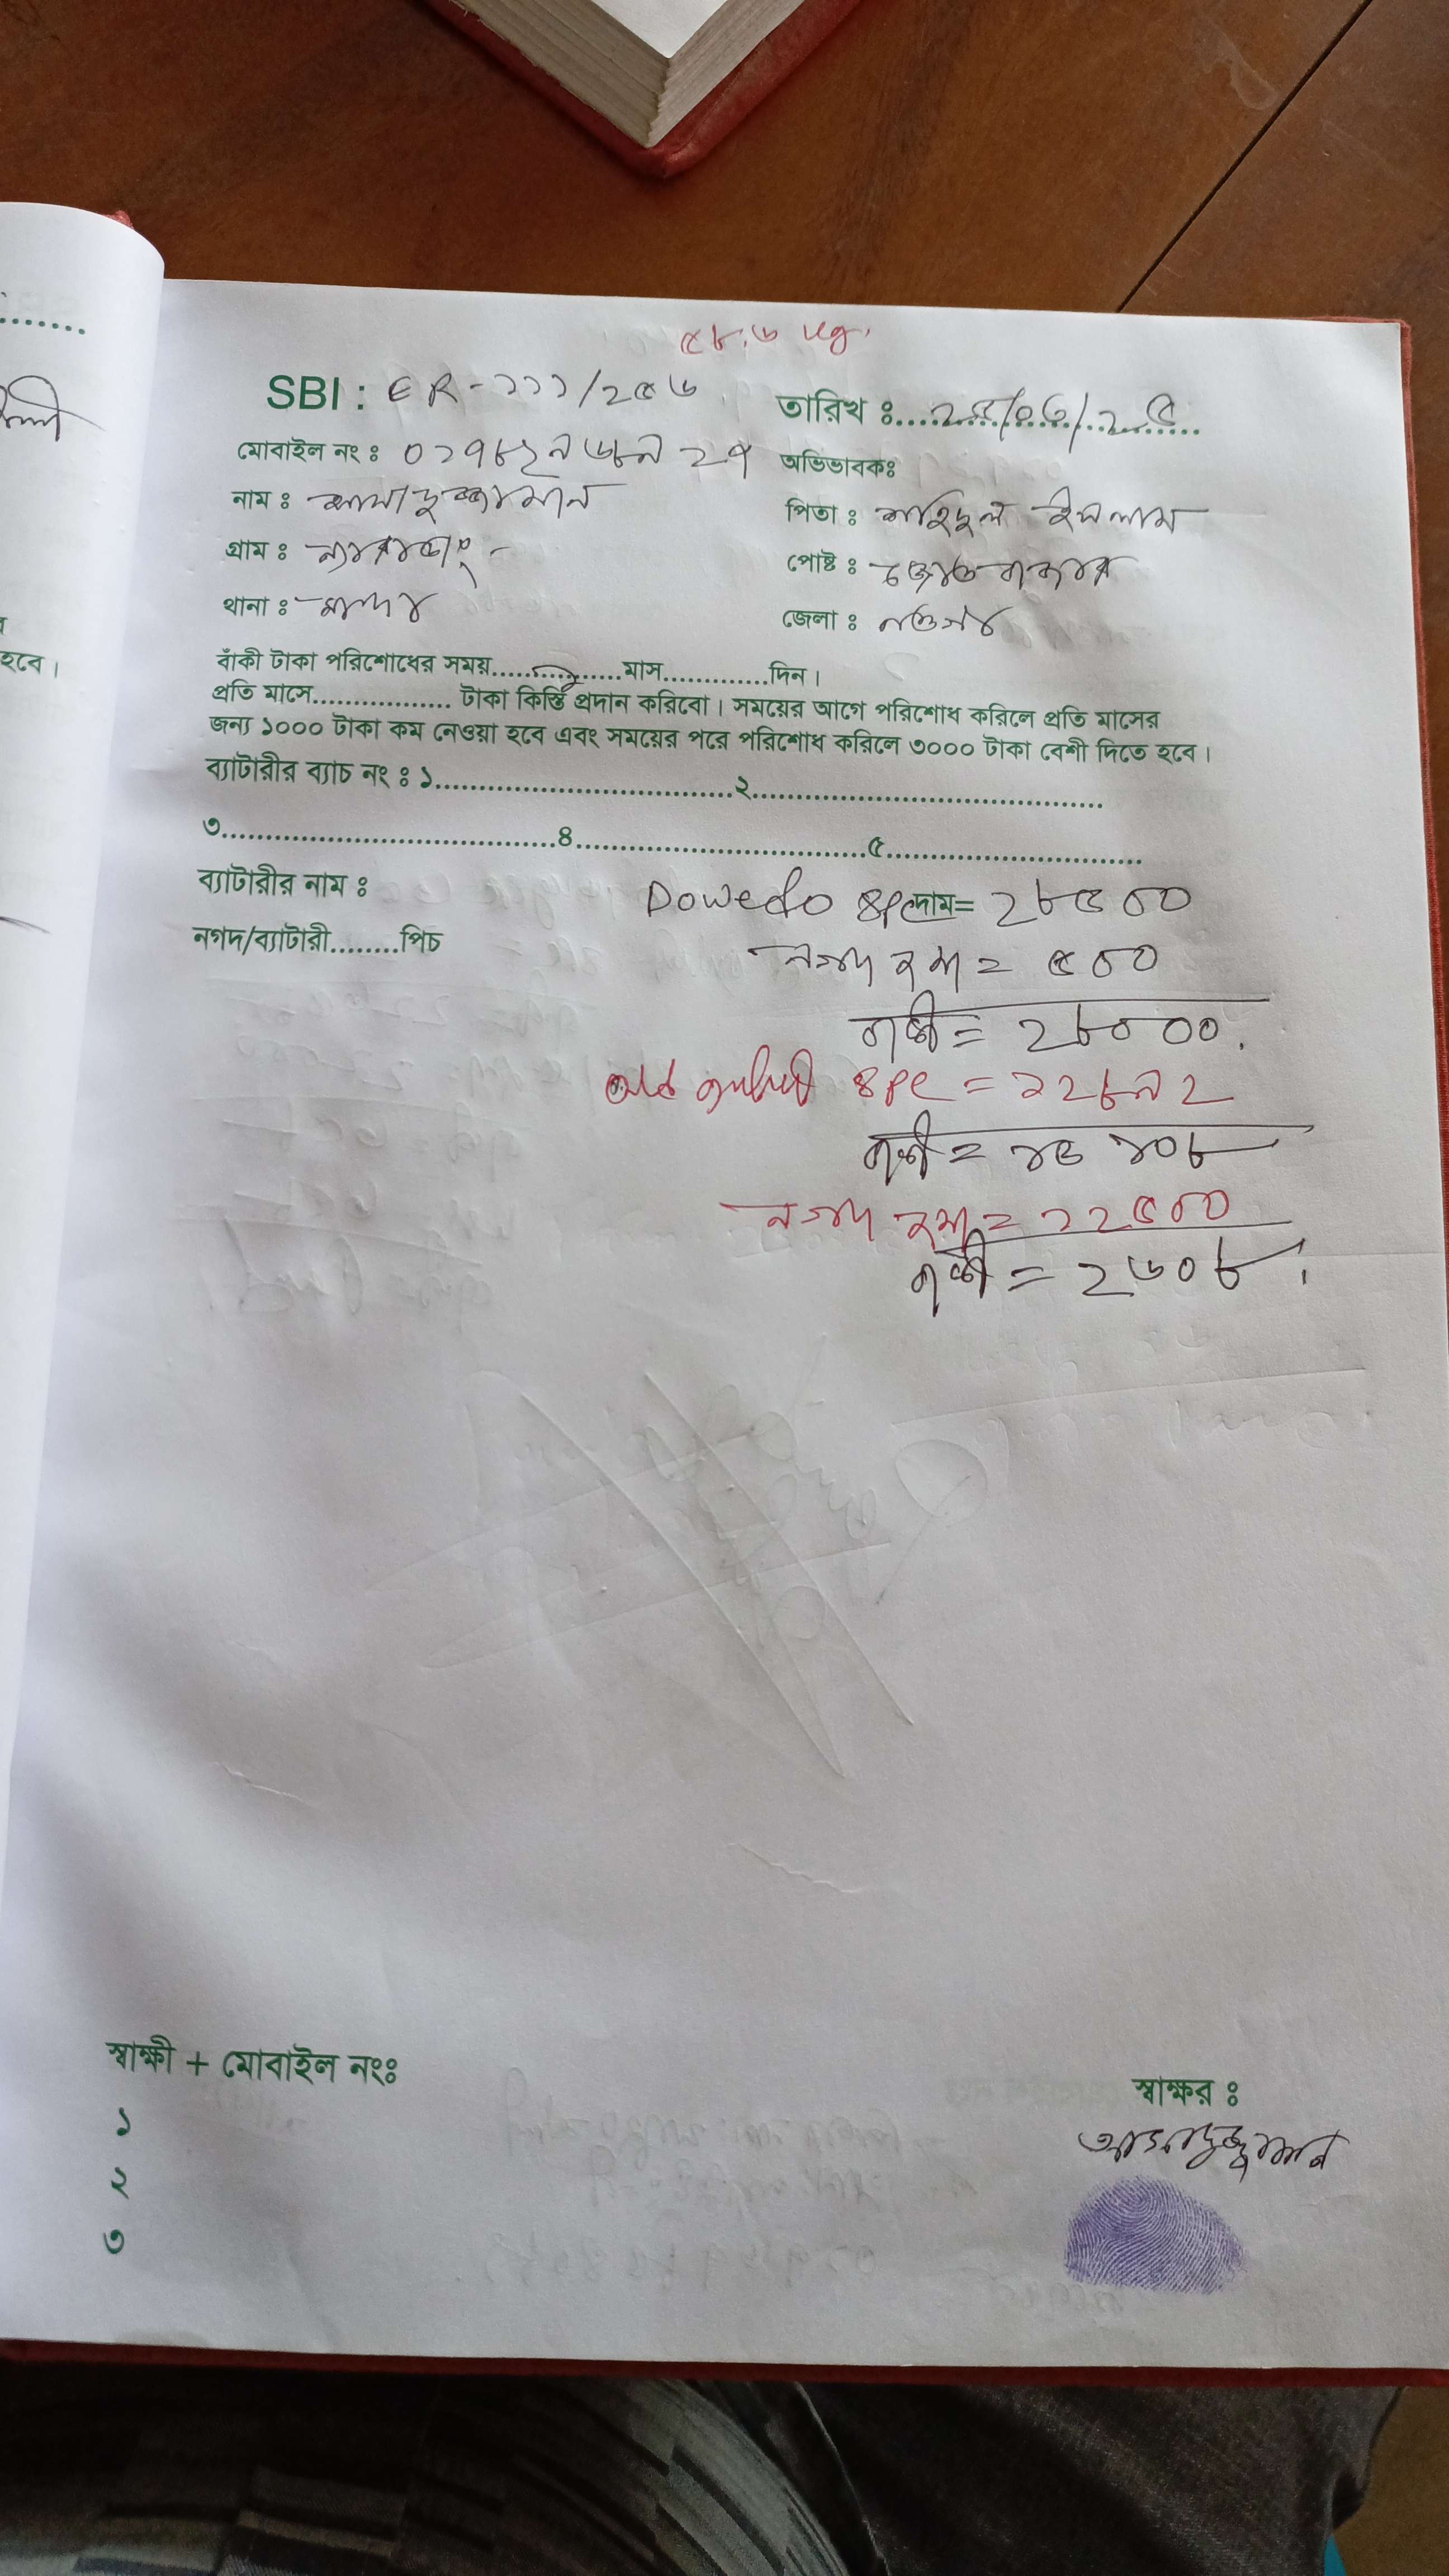 ৫৮.৬ kg.
SBI : ER-১১১/২৫৬
তারিখ ঃ....২৫/০৬/২৫
মোবাইল নং ঃ ০১৭৮২৯৬৮৯২৭
অভিভাবকঃ
নাম ঃ আসাদুজ্জামান
পিতা ঃ শহিদুল ইসলাম
গ্রাম ঃ
পোষ্ট ঃ জোতবাজার
থানা ঃ মান্দা
জেলা ঃ নওগাঁ
বাঁকী টাকা পরিশোধের সময়..................মাস..............দিন।
প্রতি মাসে.................. টাকা কিস্তি প্রদান করিবো। সময়ের আগে পরিশোধ করিলে প্রতি মাসের
জন্য ১০০০ টাকা কম নেওয়া হবে এবং সময়ের পরে পরিশোধ করিলে ৩০০০ টাকা বেশী দিতে হবে।
ব্যাটারীর ব্যাচ নং ঃ ১......................................২.............................................
৩...........................................৪.....................................৫.................................
ব্যাটারীর নাম ঃ
৪pc দাম= ২৮৫০০
নগদ/ব্যাটারী........পিচ
নগদ জমা = ৫০০
বাকী = ২৮০০০.
ব্যাটারী ৪pc = ১২৮৯২
বাকী = ১৫১০৮
নগদ জমা = ১২৫০০
বাকী = ২৬০৮.
স্বাক্ষী + মোবাইল নংঃ
স্বাক্ষর ঃ
১
আসাদুজ্জামান
২
৩
হবে।